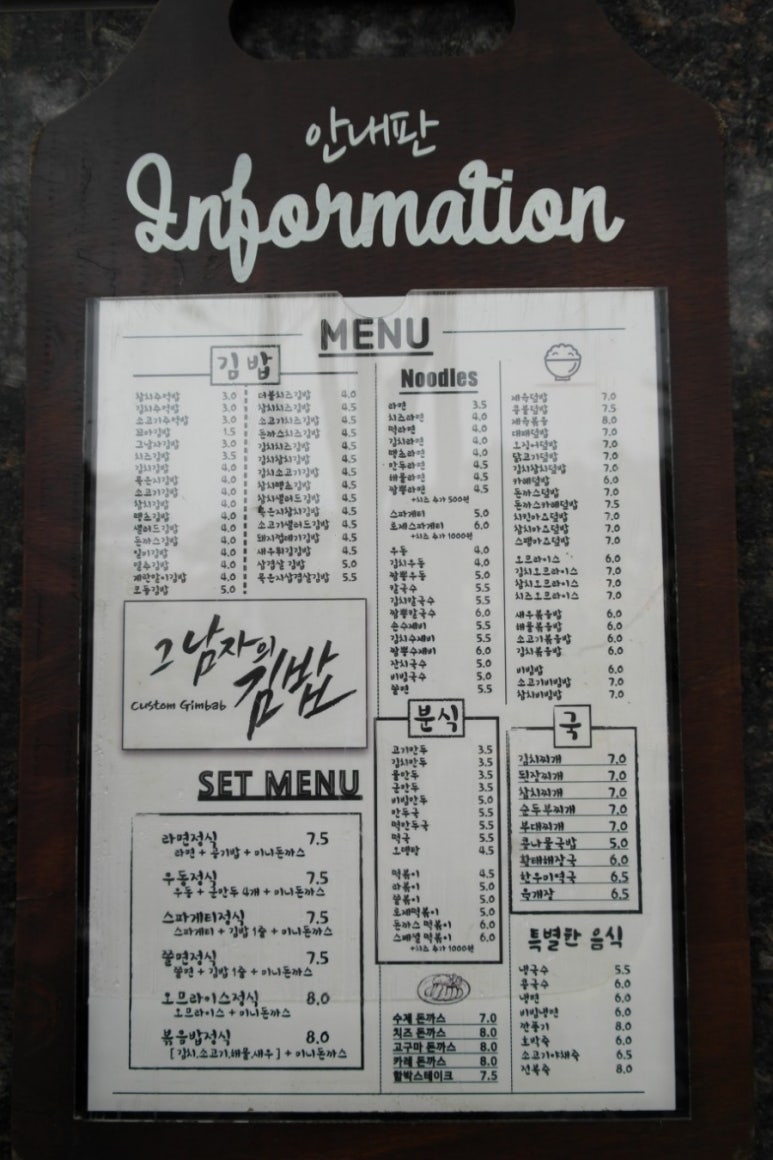 안내판
Information
MENU
김밥
참치주먹밥 3.0
김치주먹밥 3.0
소고기주먹밥 3.0
꼬마김밥 1.5
그남자김밥 3.0
치즈김밥 3.5
김치김밥 4.0
묵은지김밥 4.0
소고기김밥 4.0
참치김밥 4.0
땡초김밥 4.0
샐러드김밥 4.0
돈까스김밥 4.0
멸추김밥 4.0
계란말이김밥 4.0
모듬김밥 5.0
더블치즈김밥 4.0
참치치즈김밥 4.5
소고기치즈김밥 4.5
돈까스치즈김밥 4.5
김치치즈김밥 4.5
김치참치김밥 4.5
김치소고기김밥 4.5
참치땡초김밥 4.5
참치샐러드김밥 4.5
묵은지참치김밥 4.5
소고기샐러드김밥 4.5
새우튀김김밥 4.5
삼겹살 김밥 5.0
묵은지삼겹살김밥 5.5
그 남자의 김밥
Custom Gimbab
SET MENU
라면정식 7.5
라면 + 공기밥 + 미니돈까스
우동정식 7.5
우동 + 군만두 4개 + 미니돈까스
스파게티정식 7.5
스파게티 + 김밥 1줄 + 미니돈까스
쫄면정식 7.5
쫄면 + 김밥 1줄 + 미니돈까스
오므라이스정식 8.0
오므라이스 + 미니돈까스
볶음밥정식 8.0
[ 김치,소고기,해물,새우 ] + 미니돈까스
Noodles
라면 3.5
치즈라면 4.0
떡라면 4.0
김치라면 4.0
땡초라면 4.0
만두라면 4.5
해물라면 4.5
짬뽕라면 4.5
+치즈 추가 500원
스파게티 5.0
로제스파게티 6.0
+치즈 추가 1000원
우동 4.0
김치우동 4.0
짬뽕우동 5.0
칼국수 5.0
김치칼국수 5.5
짬뽕칼국수 6.0
손수제비 5.5
김치수제비 5.5
짬뽕수제비 6.0
잔치국수 5.0
비빔국수 5.0
쫄면 5.5
분식
고기만두 3.5
김치만두 3.5
물만두 3.5
군만두 3.5
비빔만두 5.0
만두국 5.5
떡만두국 5.5
떡국 5.5
오뎅탕 4.5
떡볶이 4.5
라볶이 5.0
쫄볶이 5.0
로제떡볶이 5.0
돈까스 떡볶이 6.0
스페셜 떡볶이 6.0
+치즈 추가 1000원
수제 돈까스 7.0
치즈 돈까스 8.0
고구마 돈까스 8.0
카레 돈까스 8.0
함박스테이크 7.5
제육덮밥 7.0
콩불덮밥 7.5
제육볶음 8.0
대패덮밥 7.0
오징어덮밥 7.0
닭고기덮밥 7.0
김치참치덮밥 7.0
카레덮밥 6.0
돈까스덮밥 7.0
돈까스카레덮밥 7.5
치킨마요덮밥 7.0
참치마요덮밥 7.0
스팸마요덮밥 7.0
오므라이스 6.0
김치오므라이스 7.0
참치오므라이스 7.0
치즈오므라이스 7.0
새우볶음밥 6.0
해물볶음밥 6.0
소고기볶음밥 6.0
김치볶음밥 6.0
비빔밥 6.0
소고기비빔밥 7.0
참치비빔밥 7.0
국
김치찌개 7.0
된장찌개 7.0
참치찌개 7.0
순두부찌개 7.0
부대찌개 7.0
콩나물국밥 5.0
황태해장국 6.0
한우미역국 6.5
육개장 6.5
특별한 음식
냉국수 5.5
콩국수 6.0
냉면 6.0
비빔냉면 6.0
깐풍기 8.0
호박죽 6.0
소고기야채죽 6.5
전복죽 8.0